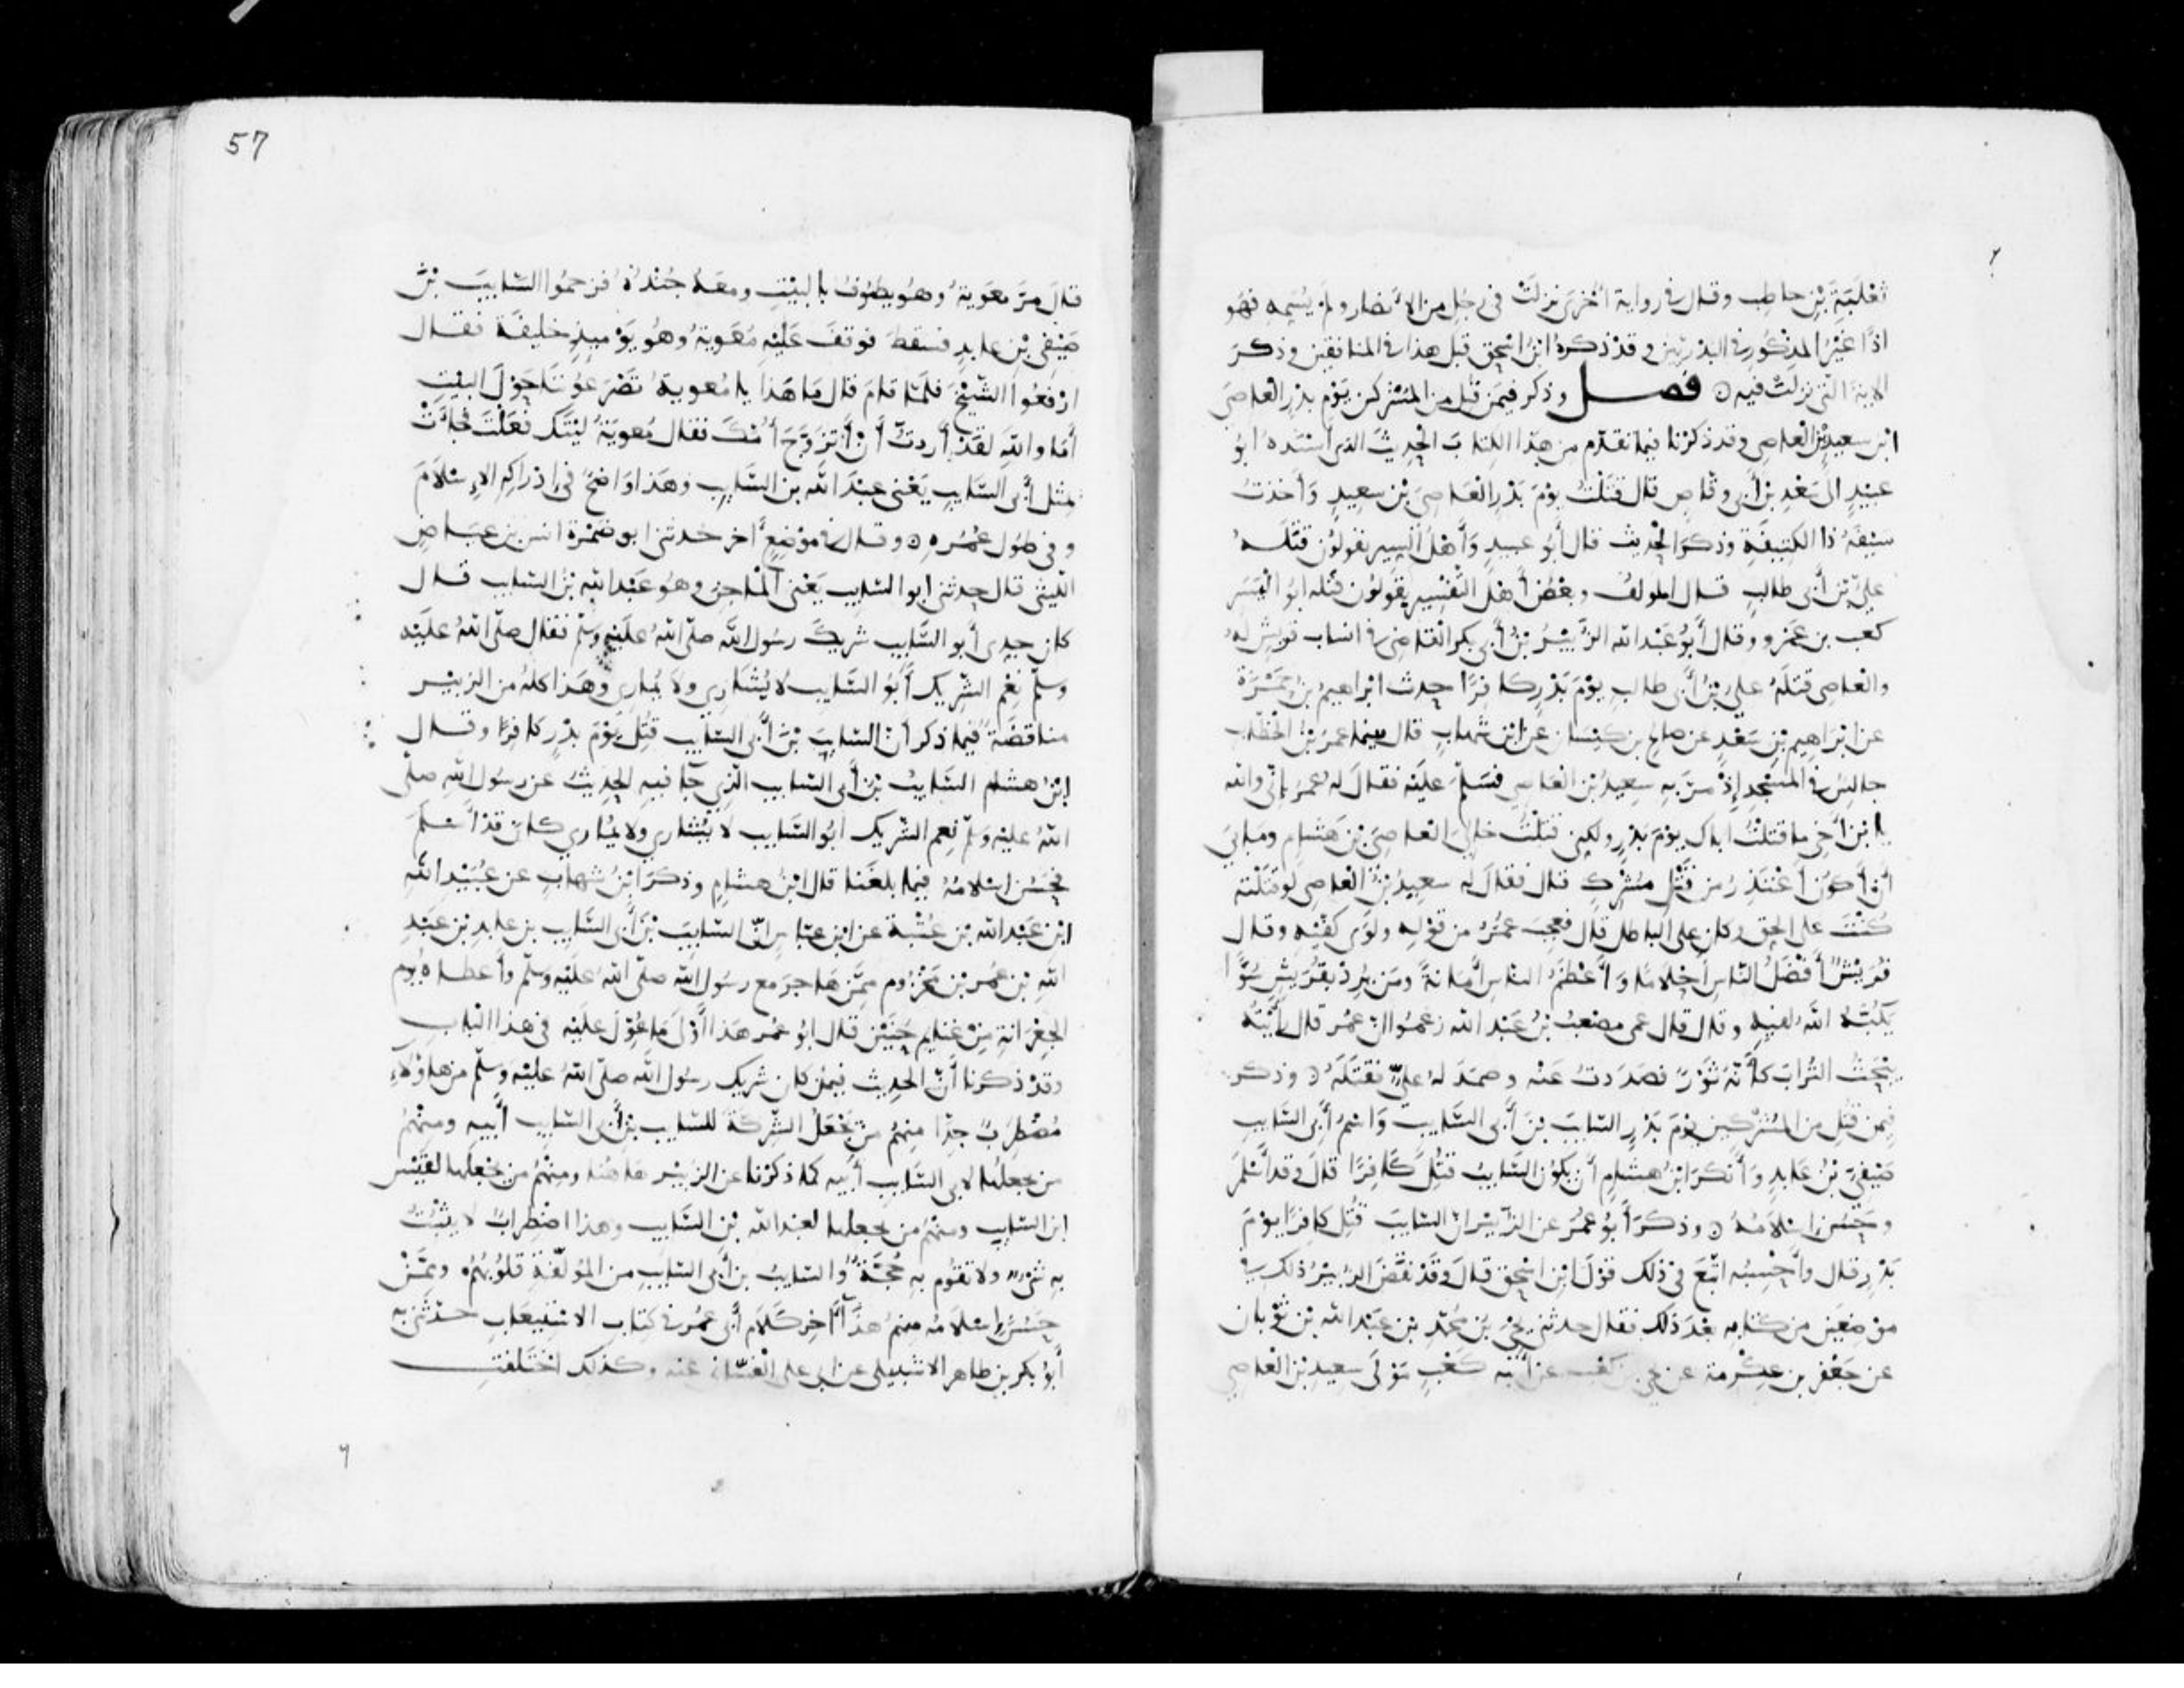 ثعلبة بن حاطب وقال في رواية أخرى نزلت في رجل من الأنصار ولم يسمه فهو
اذًا غير المذكور في البدريين وقد ذكره ابن اسحق قبل هذا في المنافقين وذكر
الاية التي نزلت فيه ⊙ فصل وذكر فيمن قتل من المشركين يوم بدر العاصي
ابن سعيد بن العاصي وقد ذكرنا فيما تقدم من هذا الكتاب الحديث الذي أسنده ابو
عبيد الى سعد بن أبي وقاص قال قتلت يوم بدر العاصي بن سعيد وأخذت
سيفه ذا الكتيفة وذكر الحديث قال أبو عبيد وأهل السير يقولون قتله
علي بن أبي طالب قال المولف وبعض أهل التفسير يقولون قتله ابو اليسر
كعب بن عمرو وقال أبو عبد الله الزبير بن أبي بكر القاضي في انساب قريش له
والعاصي قتله علي بن أبي طالب يوم بدر كافرًا حدث ابراهيم بن حمزة
عن ابراهيم بن سعد عن صالح بن كيسان عن ابن شهاب قال بينما عمر بن الخطاب
جالس في المسجد إذ مر به سعيد بن العاصي فسلم عليه فقال له عمر اني والله
يا بن أخي ما قتلت اباك يوم بدر ولكني قتلت خالي العاصي بن هشام وما بي
أن أكون أعتذر من قتل مشرك قال فقال له سعيد بن العاصي لو قتلته
كنت على الحق وكان على الباطل قال فعجب عمر من قوله ولوى كفيه وقال
قريش أفضل الناس أحلاما وأعظم الناس أمانة ومن يرد بقريش سوءا
يكبه الله لفيه وقال قال عمى مصعب بن عبد الله زعموا ان عمر قال رأيته
يبحث التراب كأنه ثور فصددت عنه وصمد له علي فقتله ⊙ وذكر
فيمن قتل من المشركين يوم بدر السايب بن أبي السايب واسم أبي السايب
صيفي بن عابد وأنكر ابن هشام أن يكون السايب قتل كافرا قال وقد أسلم
وحسن إسلامه ⊙ وذكر أبو عمر عن الزبير ان السايب قتل كافرا يوم
بدر قال وأحسبه اتبع في ذلك قول ابن اسحق قال وقد نقض الزبير ذلك في
موضعين من كتابه بعد ذلك فقال حدثني يحيى بن محمد بن عبد الله بن ثوبان
عن جعفر بن عكرمة عن يحيى بن كعب عن أبيه كعب مولى سعيد بن العاصي
57
قال مر معوية وهو يطوف بالبيت ومعه جنده فزحموا السايب بن
صيفي بن عابد فسقط فوقف عليه معوية وهو يوميذ خليفة فقال
ارفعوا الشيخ فلما قام قال ما هذا يا معوية تصرعوننا حول البيت
أما والله لقد أردت أن أتزوج أمك فقال معوية ليتك فعلت فجاءت
بمثل أبي السايب يعني عبد الله بن السايب وهذا واضح في إدراكه الإسلام
وفي طول عمره ⊙ وقال في موضع آخر حدثني ابو ضمرة انس بن عياض
الليثي قال حدثني ابو السايب يعني الماجن وهو عبد الله بن السايب قال
كان جدي أبو السايب شريك رسول الله صلى الله عليه وسلم فقال صلى الله عليه
وسلم نعم الشريك أبو السايب لا يشاري ولا يماري وهذا كله من الزبير
مناقضة فيما ذكر أن السايب بن أبي السايب قتل يوم بدر كافرا وقال
ابن هشام السايب بن أبي السايب الذي جا فيه الحديث عن رسول الله صلى
الله عليه وسلم نعم الشريك ابو السايب لا يشاري ولا يماري كان قد أسلم
فحسن إسلامه فيما بلغنا قال ابن هشام وذكر ابن شهاب عن عبيد الله
ابن عبد الله بن عتبة عن ابن عباس انّ السايب بن أبي السايب بن عابد بن عبد
الله بن عمر بن مخزوم ممن هاجر مع رسول الله صلى الله عليه وسلم وأعطاه يوم
الجعرانة من غنايم حنين قال ابو عمر هذا أولى ما عول عليه في هذا الباب
وقد ذكرنا أن الحديث فيمن كان شريك رسول الله صلى الله عليه وسلم من هاؤلاء
مضطرب جدا منهم من يجعل الشركة للسايب بن أبي السايب أبيه ومنهم
من يجعلها لابي السايب أبيه كما ذكرنا عن الزبير هاهنا ومنهم من يجعلها لقيس
ابن السايب ومنهم من يجعلها لعبد الله بن السايب وهذا اضطراب لا يثبت
به شيء ولا تقوم به حجة والسايب بن أبي السايب من المولفة قلوبهم وممن
حسن إسلامه منهم هذا آخر كلام أبي عمر في كتاب الاستيعاب حدثني به
أبو بكر بن طاهر الاشبيلي عن ابي علي الغساني عنه وكذلك اختلفت